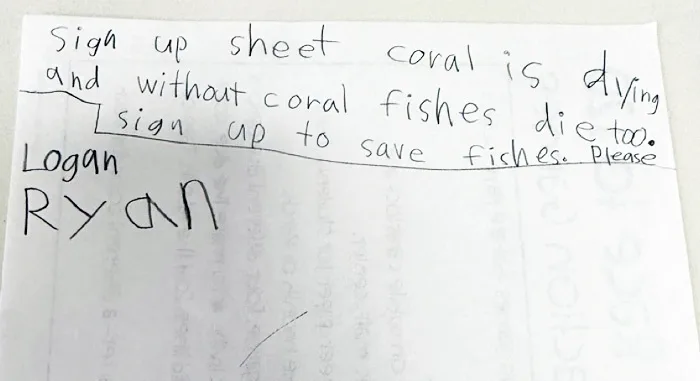 Sign up sheet coral is dying
and without coral fishes die too.
sign up to save fishes. Please
Logan
Ryan